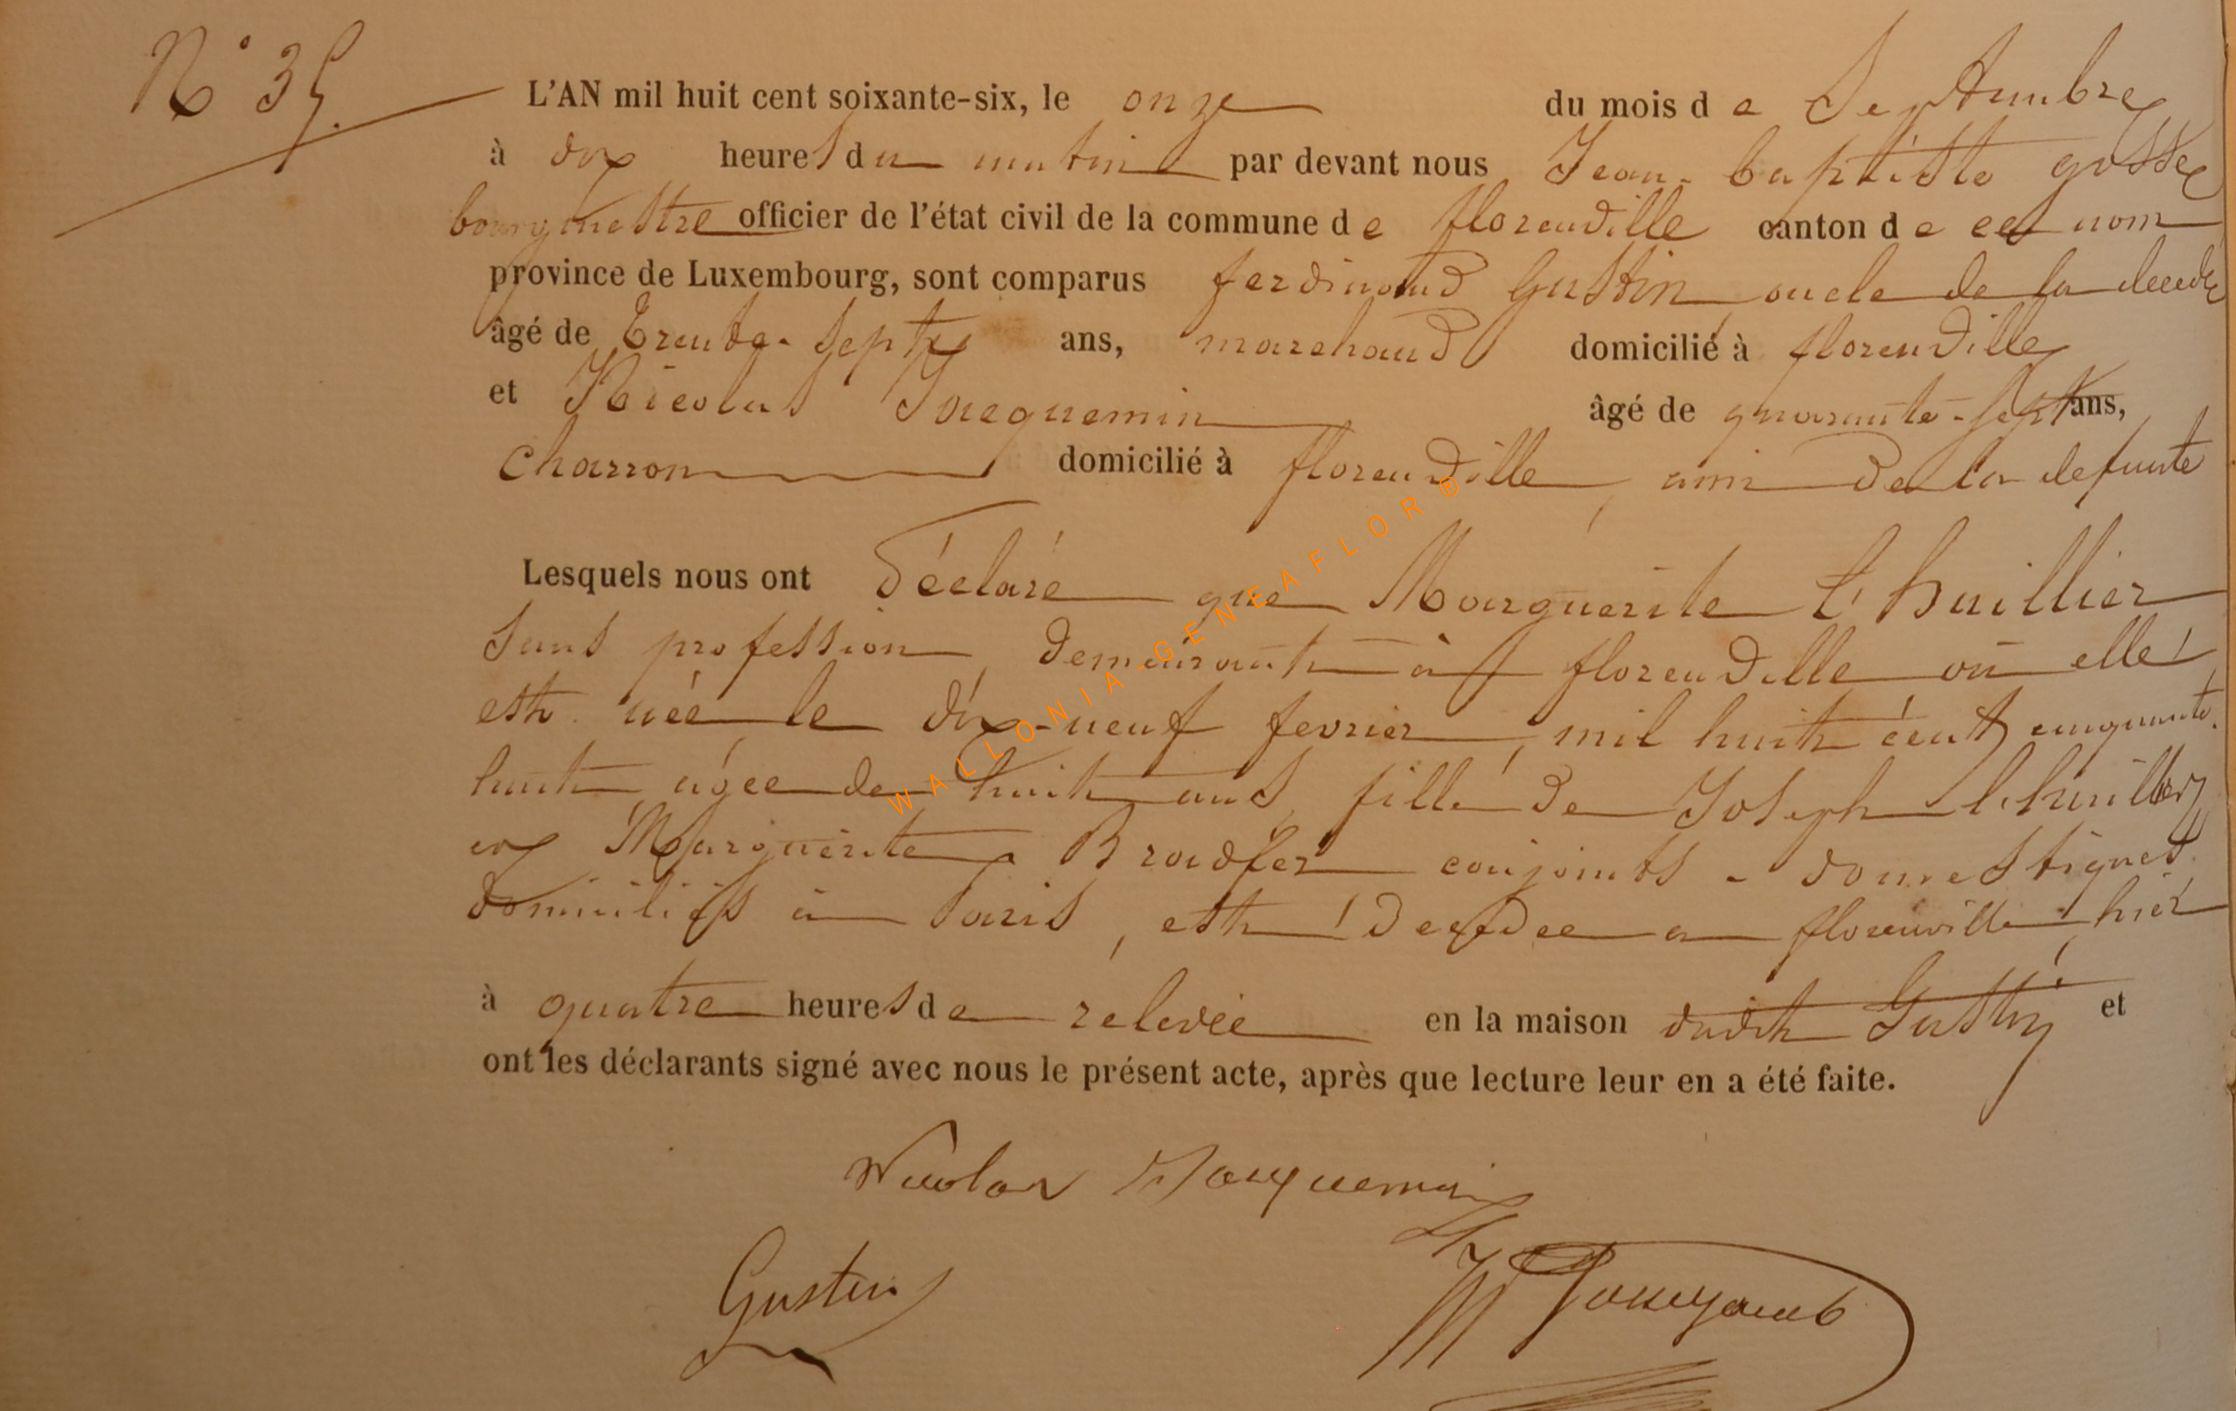 N° 35.
L'AN mil huit cent soixante-six, le onze du mois de Septembre
à dix heures du matin par devant nous Jean-baptiste gosse
bourgmestre officier de l'état civil de la commune de florenville canton de ce nom
province de Luxembourg, sont comparus ferdinand Gustin oncle de la decedée
âgé de trente-sept ans, marchand domicilié à florenville
et Nicolas Jacquemin âgé de quarante-sept ans,
charron domicilié à florenville, ami de la defunte
Lesquels nous ont déclaré que Marguerite l'huillier
sans profession, demeurant à florenville où elle
est née le dix-neuf fevrier, mil huit cent cinquante-
huit, agée de huit ans, fille de Joseph l'huillier
et Marguerite Bradfer conjoints - domestiques
domiciliés à Paris, est décédée a florenville, hier
à quatre heures de relevée en la maison dudit Gustin et
ont les déclarants signé avec nous le présent acte, après que lecture leur en a été faite.
Nicolas Jacquemin
Gustin
WALLONIA-GENEAFLOR®